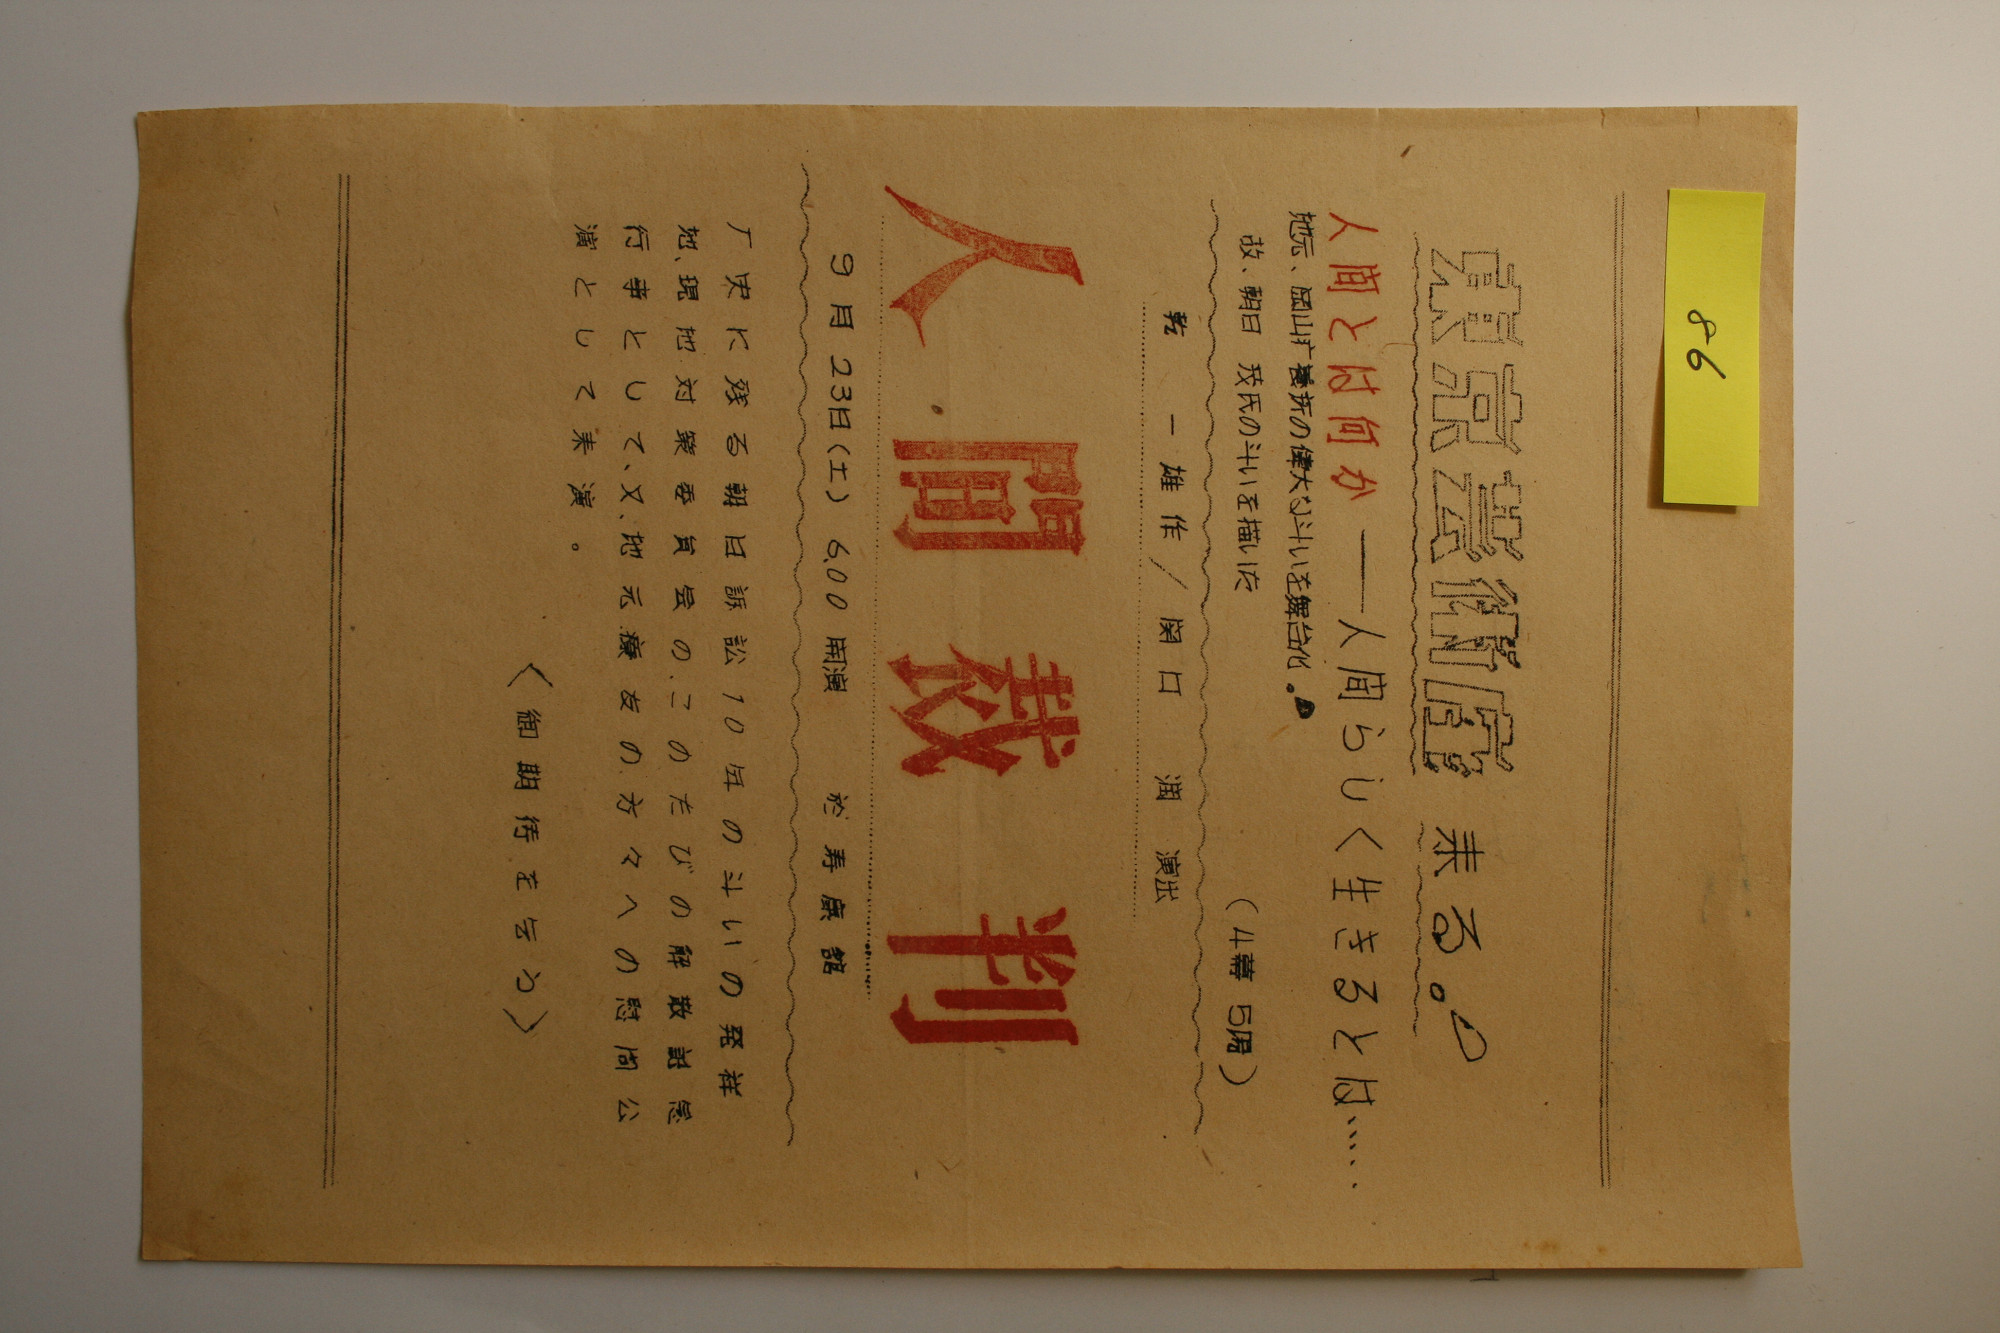 86
東京芸術座 来る。!
人間とは何か――人間らしく生きるとは、、、、、
地元、岡山疒養所の偉大な斗いを舞台化。!
故、朝日 茂氏の斗いを描いた (4幕 5場)
乾 一雄作/関口 潤 演出
人間裁判
9月23日(土) 6,00 開演 於寿康館
厂史に残る朝日訴訟10年の斗いの発祥
地、現地対策委員会の、このたびの解散記念
行事として、又、地元療友の方々への慰问公
演として来演。
〈御期待を乞う〉